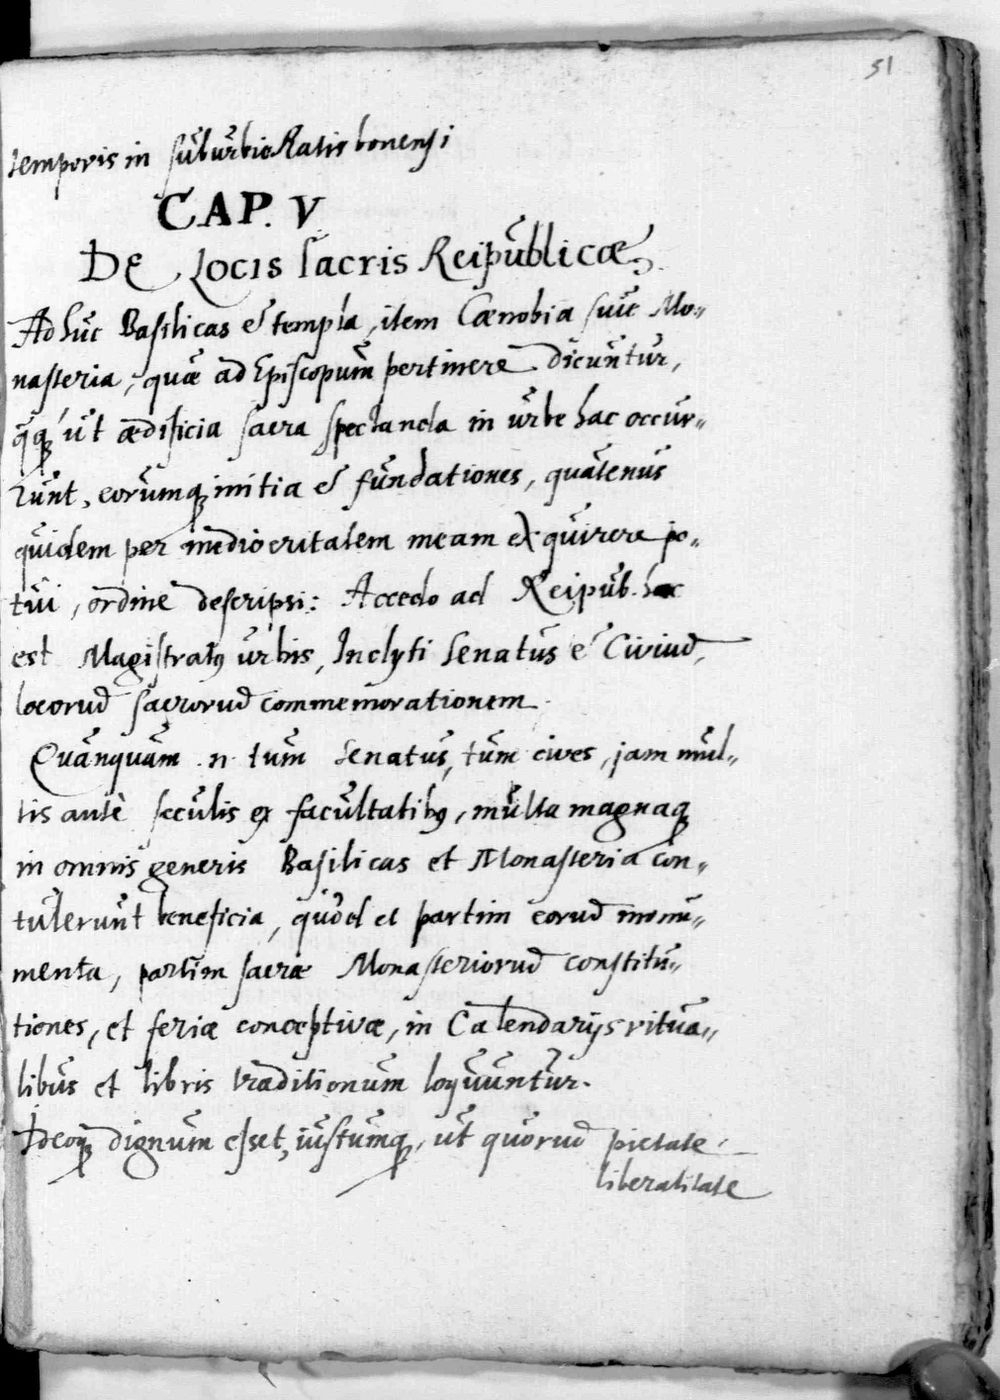 51
temporis in suburbio Ratisbonensi
CAP. V
De Locis sacris Reipublicæ.
Adhuc Basilicas et templa, item Cœnobia sive Mo=
nasteria, quæ ad Episcopum pertinere dicuntur,
q̃q; ut ædificia sacra spectanda in urbe hac occur=
runt, eorumq; initia et fundationes, quatenus
quidem per mediocritatem meam exquirere po=
tui, ordine descripsi: Accedo ad Reipub. hoc
est Magistratꝰ urbis, Inclyti Senatus et Civiũ,
locorũ sacrorũ commemorationem.
Quanquam .n. tum Senatus, tum cives, jam mul=
tis antè seculis ex facultatibꝰ, multa magnaq;
in omnis generis Basilicas et Monasteria con=
tulerunt beneficia, quod et partim eorũ monu=
menta, partim sacræ Monasteriorũ constitu=
tiones, et feriæ conceptivæ, in Calendarijs ritua=
libus et libris traditionum loquuntur.
Ideoq; dignum esset, iustumq;, ut quorũ pietate
liberalitate